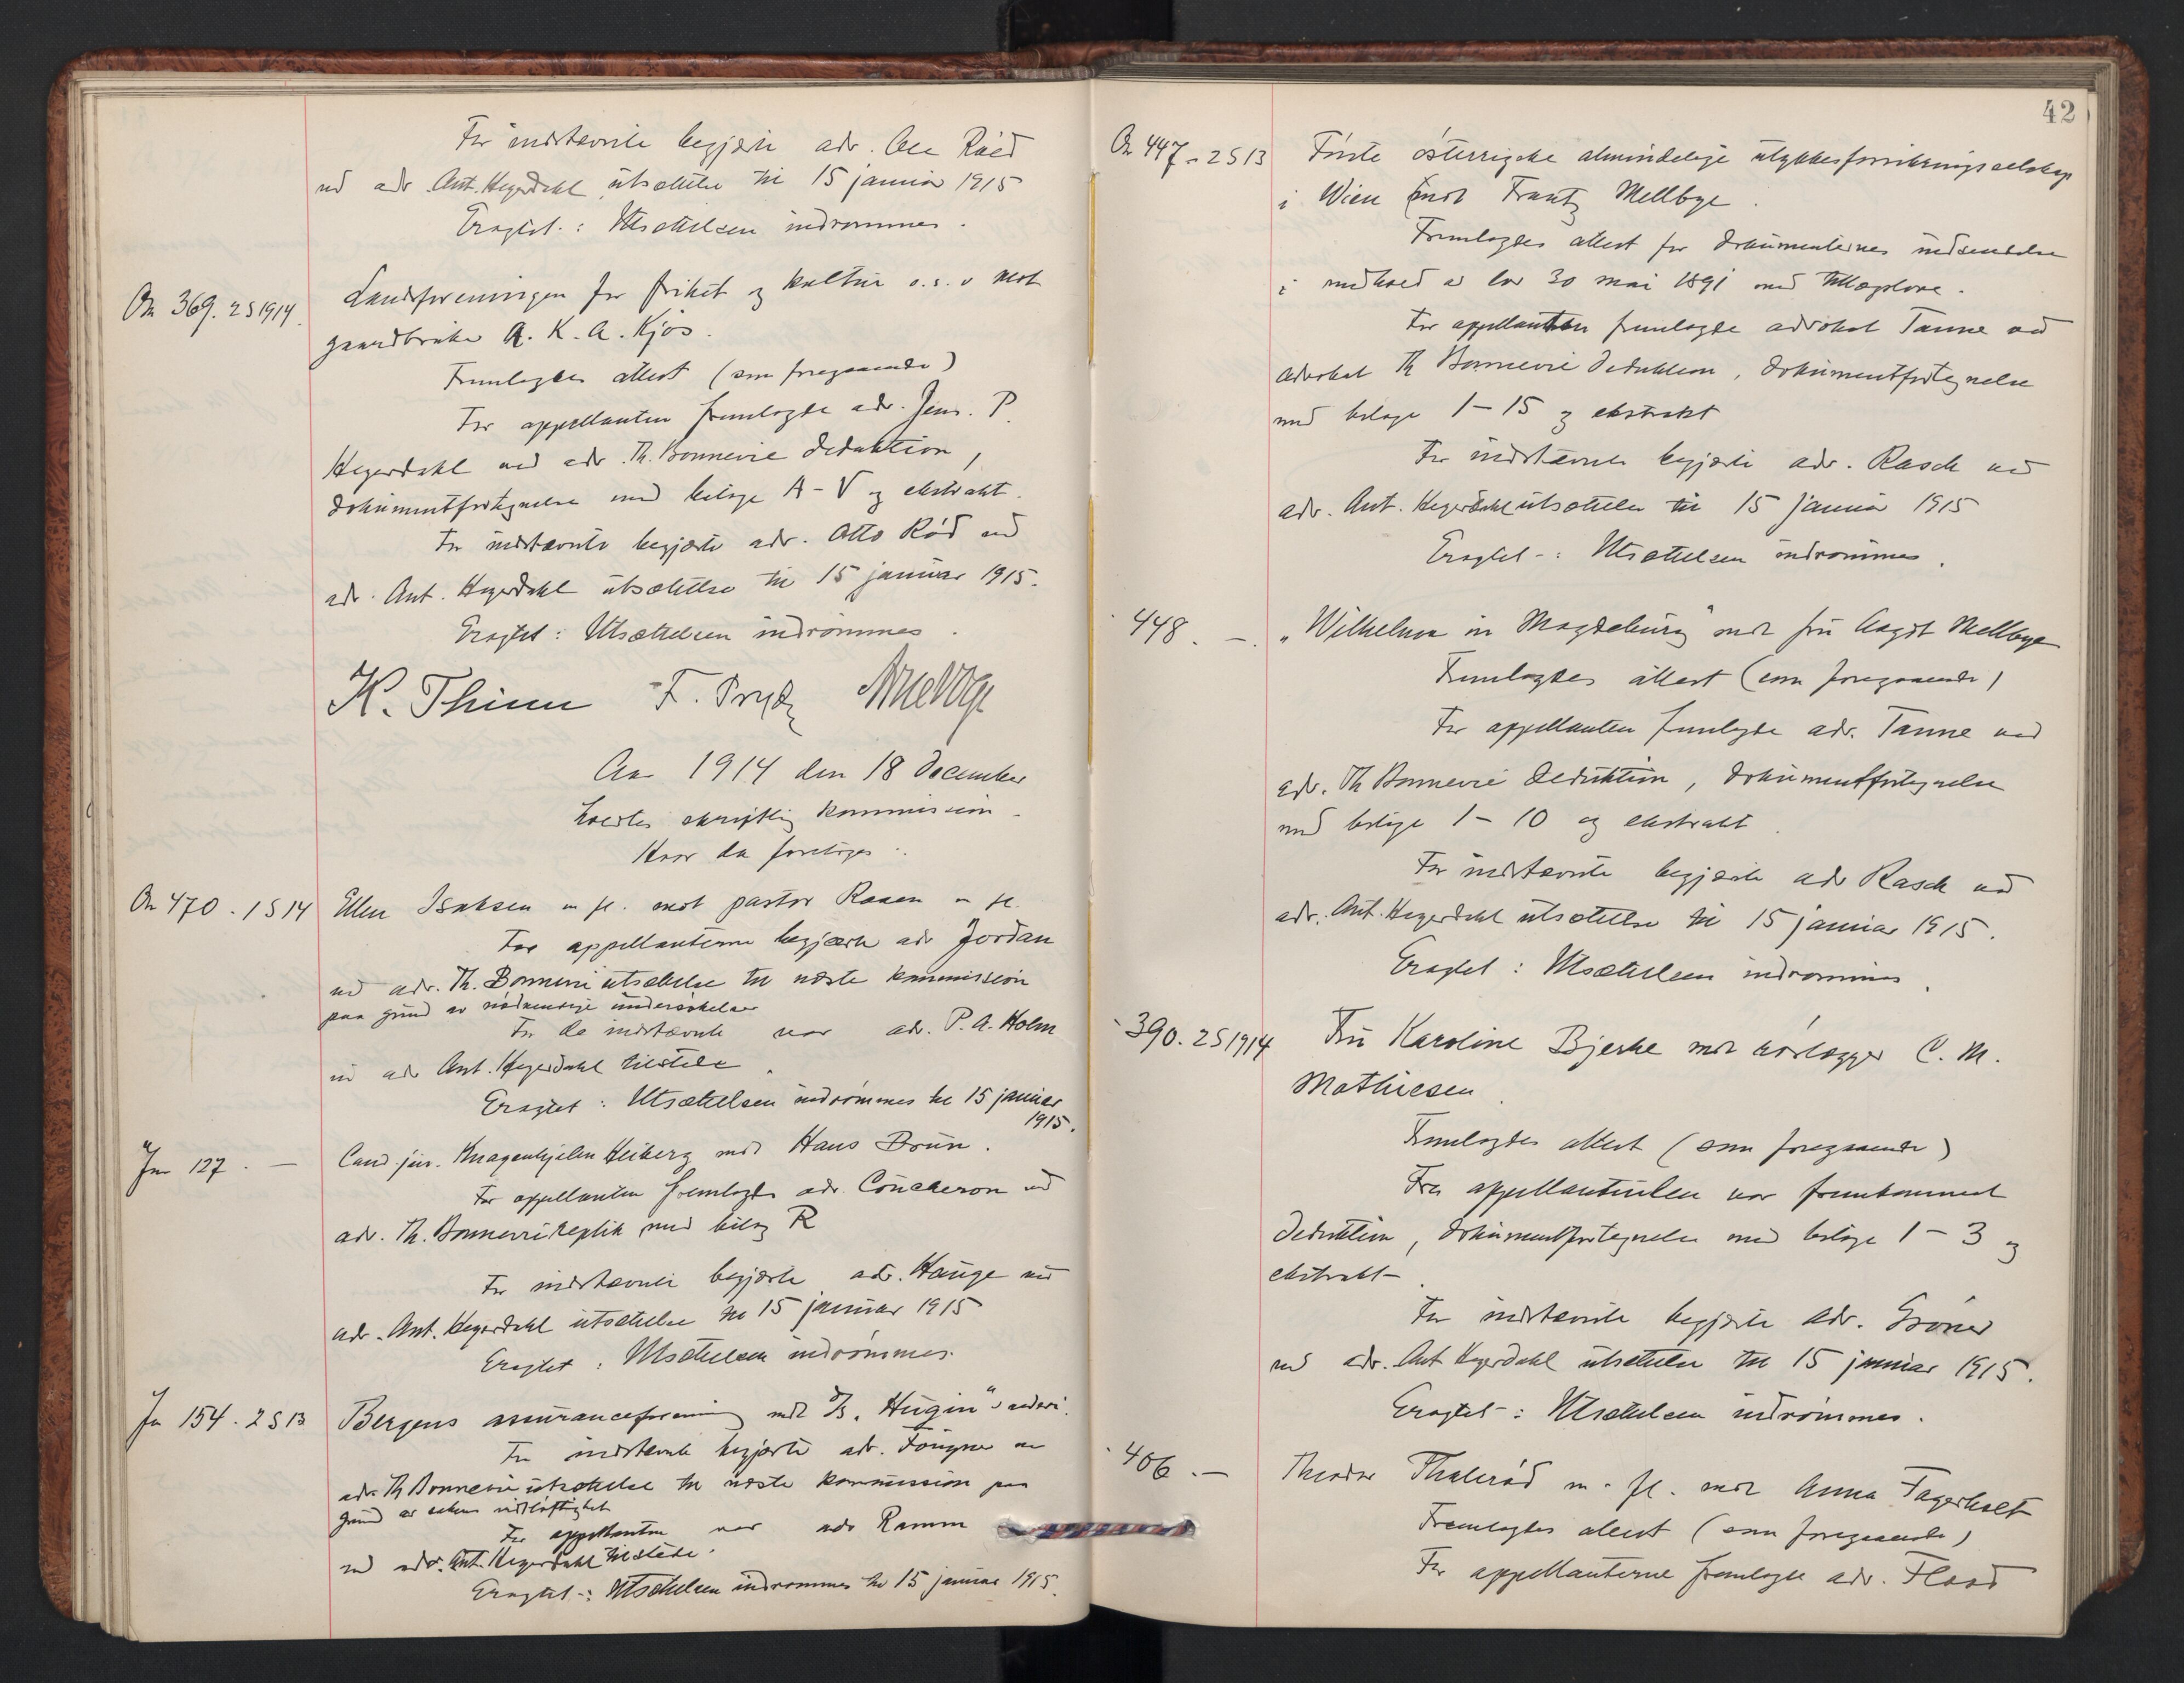 For indstevnte begjærte adv. Ole Röed
ved adv Ant. Hegerdahl utsættelse til 15 januar 1915
Eragtet: Utsættelsen indrömmes.
On 369. 2S 1914. Landsforeningen for frihet og kultur o.s.v mot
gaardbruker A. K. A. Kjos.
Fremlagdes attest (som foregaaende)
For appellanten fremlagde adv. Jens. P.
Hegerdahl ved adv. Th. Bonnevie deduktion,
dokumentfortegnelse med bilage A-V og ekstrakt.
For indstævnte begjærte adv. Otto Röd ved
adv. Ant. Hegerdahl utsættelse til 15 januar 1915.
Eragtet: Utsættelsen indrömmes.
K. Thinn F. Pryd
Aar 1914 den 18 december
holdtes skriftlig kommission.
Hvor da foretoges:
On 470. 1S 14 Ellen Isaksen m fl. mot pastor Raaen m fl.
For appellanterne begjærte adv Jordan
ved adv. Th. Bonnevie utsættelse til næste kommission
paa grund av nödvendige undersökelser
For de indstævnte var adv. P. A. Holm
ved adv Ant. Hegerdahl tilstede.
Eragtet: Utsættelsen indrömmes til 15 januar
1915.
Jm 127. — Cand. jur. Knagenhjelm Heiberg mot Hans Brun.
For appellanten fremlagde adv. Coucheron ved
adv. Th. Bonnevie replik med bilag R
For indstævnte begjærte adv. Hauge ved
adv. Ant. Hegerdahl utsættelse til 15 januar 1915
Eragtet: Utsættelsen indrömmes.
Jm 154. 2S 13 Bergens assuranceforening mot D/S "Hugin"s rederi.
For indstævnte begjærte adv. Fougner ved
adv. Th Bonnevie utsættelse til næste kommission paa
grund av sakens vidlöftighet
For appellanten var adv Ramm
ved adv. Ant. Hegerdahl tilstede.
Eragtet: Utsættelsen indrommes til 15 januar 1915.
42
On 447. 2S 13 Förste österrigske almindelige ulykkesforsikringsselskap
i Wien mot Frantz Mellbye.
Fremlagdes attest for dokumenternes indsendelse
i medhold av lov 30 mai 1891 med tillægslove.
For appellanten fremlagde advokat Tanne ved
advokat Th Bonnevie deduktion, dokumentfortegnelse
med bilage 1-15 og ekstrakt
For indstævnte begjærte adv. Rasch ved
adv. Ant. Hegerdahl utsættelse til 15 januar 1915
Eragtet: Utsættelsen indrömmes.
448. —. "Wilhelma in Magdeburg" mot fru Aagot Mellbye
Fremlagdes attest (som foregaaende)
For appellanten fremlagde adv. Tanne ved
adv. Th Bonnevie deduktion, dokumentfortegnelse
med bilage 1-10 og ekstrakt.
For indstævnte begjærte adv Rasch ved
adv. Ant. Hegerdahl utsættelse til 15 januar 1915.
Eragtet: Utsættelsen indrömmes.
390. 2S 1914 Fru Karoline Bjerke mot rörlægger C. M.
Mathiesen.
Fremlagdes attest (som foregaaende)
Fra appellantinden var fremkommet
deduktion, dokumentfortegnelse med bilage 1-3 og
ekstrakt.
For indstævnte begjærte adv. Gröner
ved adv. Ant Hegerdahl utsættelse til 15 januar 1915.
Eragtet: Utsættelsen indrömmes.
406. — Theodor Thaleröd m. fl. mot Anna Fagerholt
Fremlagdes attest (som foregaaende)
For appellanterne fremlagde adv. Flood